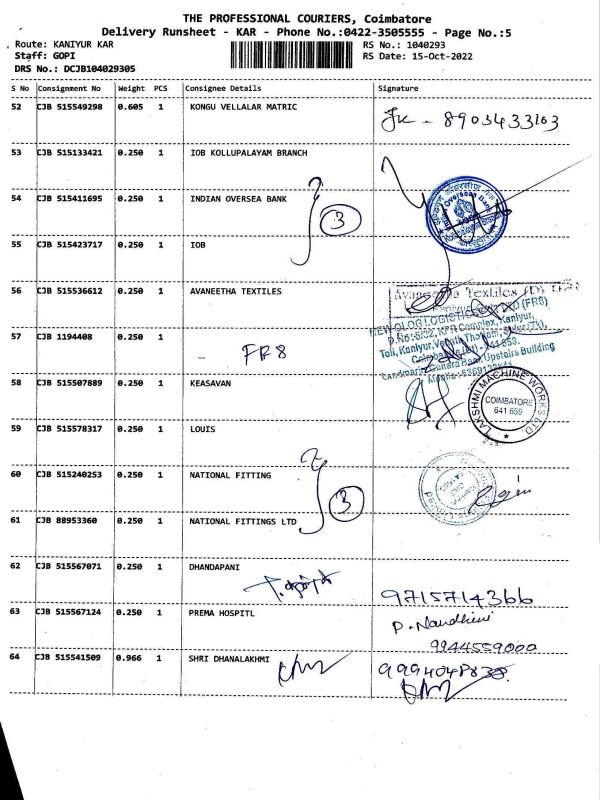 THE PROFESSIONAL COURIERS, Coimbatore
Delivery Runsheet - KAR - Phone No.:0422-3505555 - Page No.:5
Route: KANIYUR KAR
RS No.: 1040293
Staff: GOPI
RS Date: 15-Oct-2022
DRS No.: DCJB104029305
S No Consignment No Weight PCS Consignee Details Signature
52 CJB 515549298 0.605 1 KONGU VELLALAR MATRIC
8903433163
53 CJB 515133421 0.250 1 IOB KOLLUPALAYAM BRANCH
54 CJB 515411695 0.250 1 INDIAN OVERSEA BANK
3
55 CJB 515423717 0.250 1 IOB
56 CJB 515536612 0.250 1 AVANEETHA TEXTILES
Textiles (P)
(FR8)
57 CJB 1194408 0.250 1
- FR8
KPR Complex, Kaniyur,
Upstairs Building
58 CJB 515507889 0.250 1 KEASAVAN
LAKSHMI MACHINE WORKS LTD
COIMBATORE
641 659
59 CJB 515578317 0.250 1 LOUIS
60 CJB 515240253 0.250 1 NATIONAL FITTING
3
61 CJB 88953360 0.250 1 NATIONAL FITTINGS LTD
62 CJB 515567071 0.250 1 DHANDAPANI
9715714366
63 CJB 515567124 0.250 1 PREMA HOSPITL
P. Nandhini
9944559000
64 CJB 515541509 0.966 1 SHRI DHANALAKHMI
9994048838